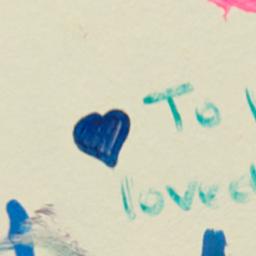 To
loved